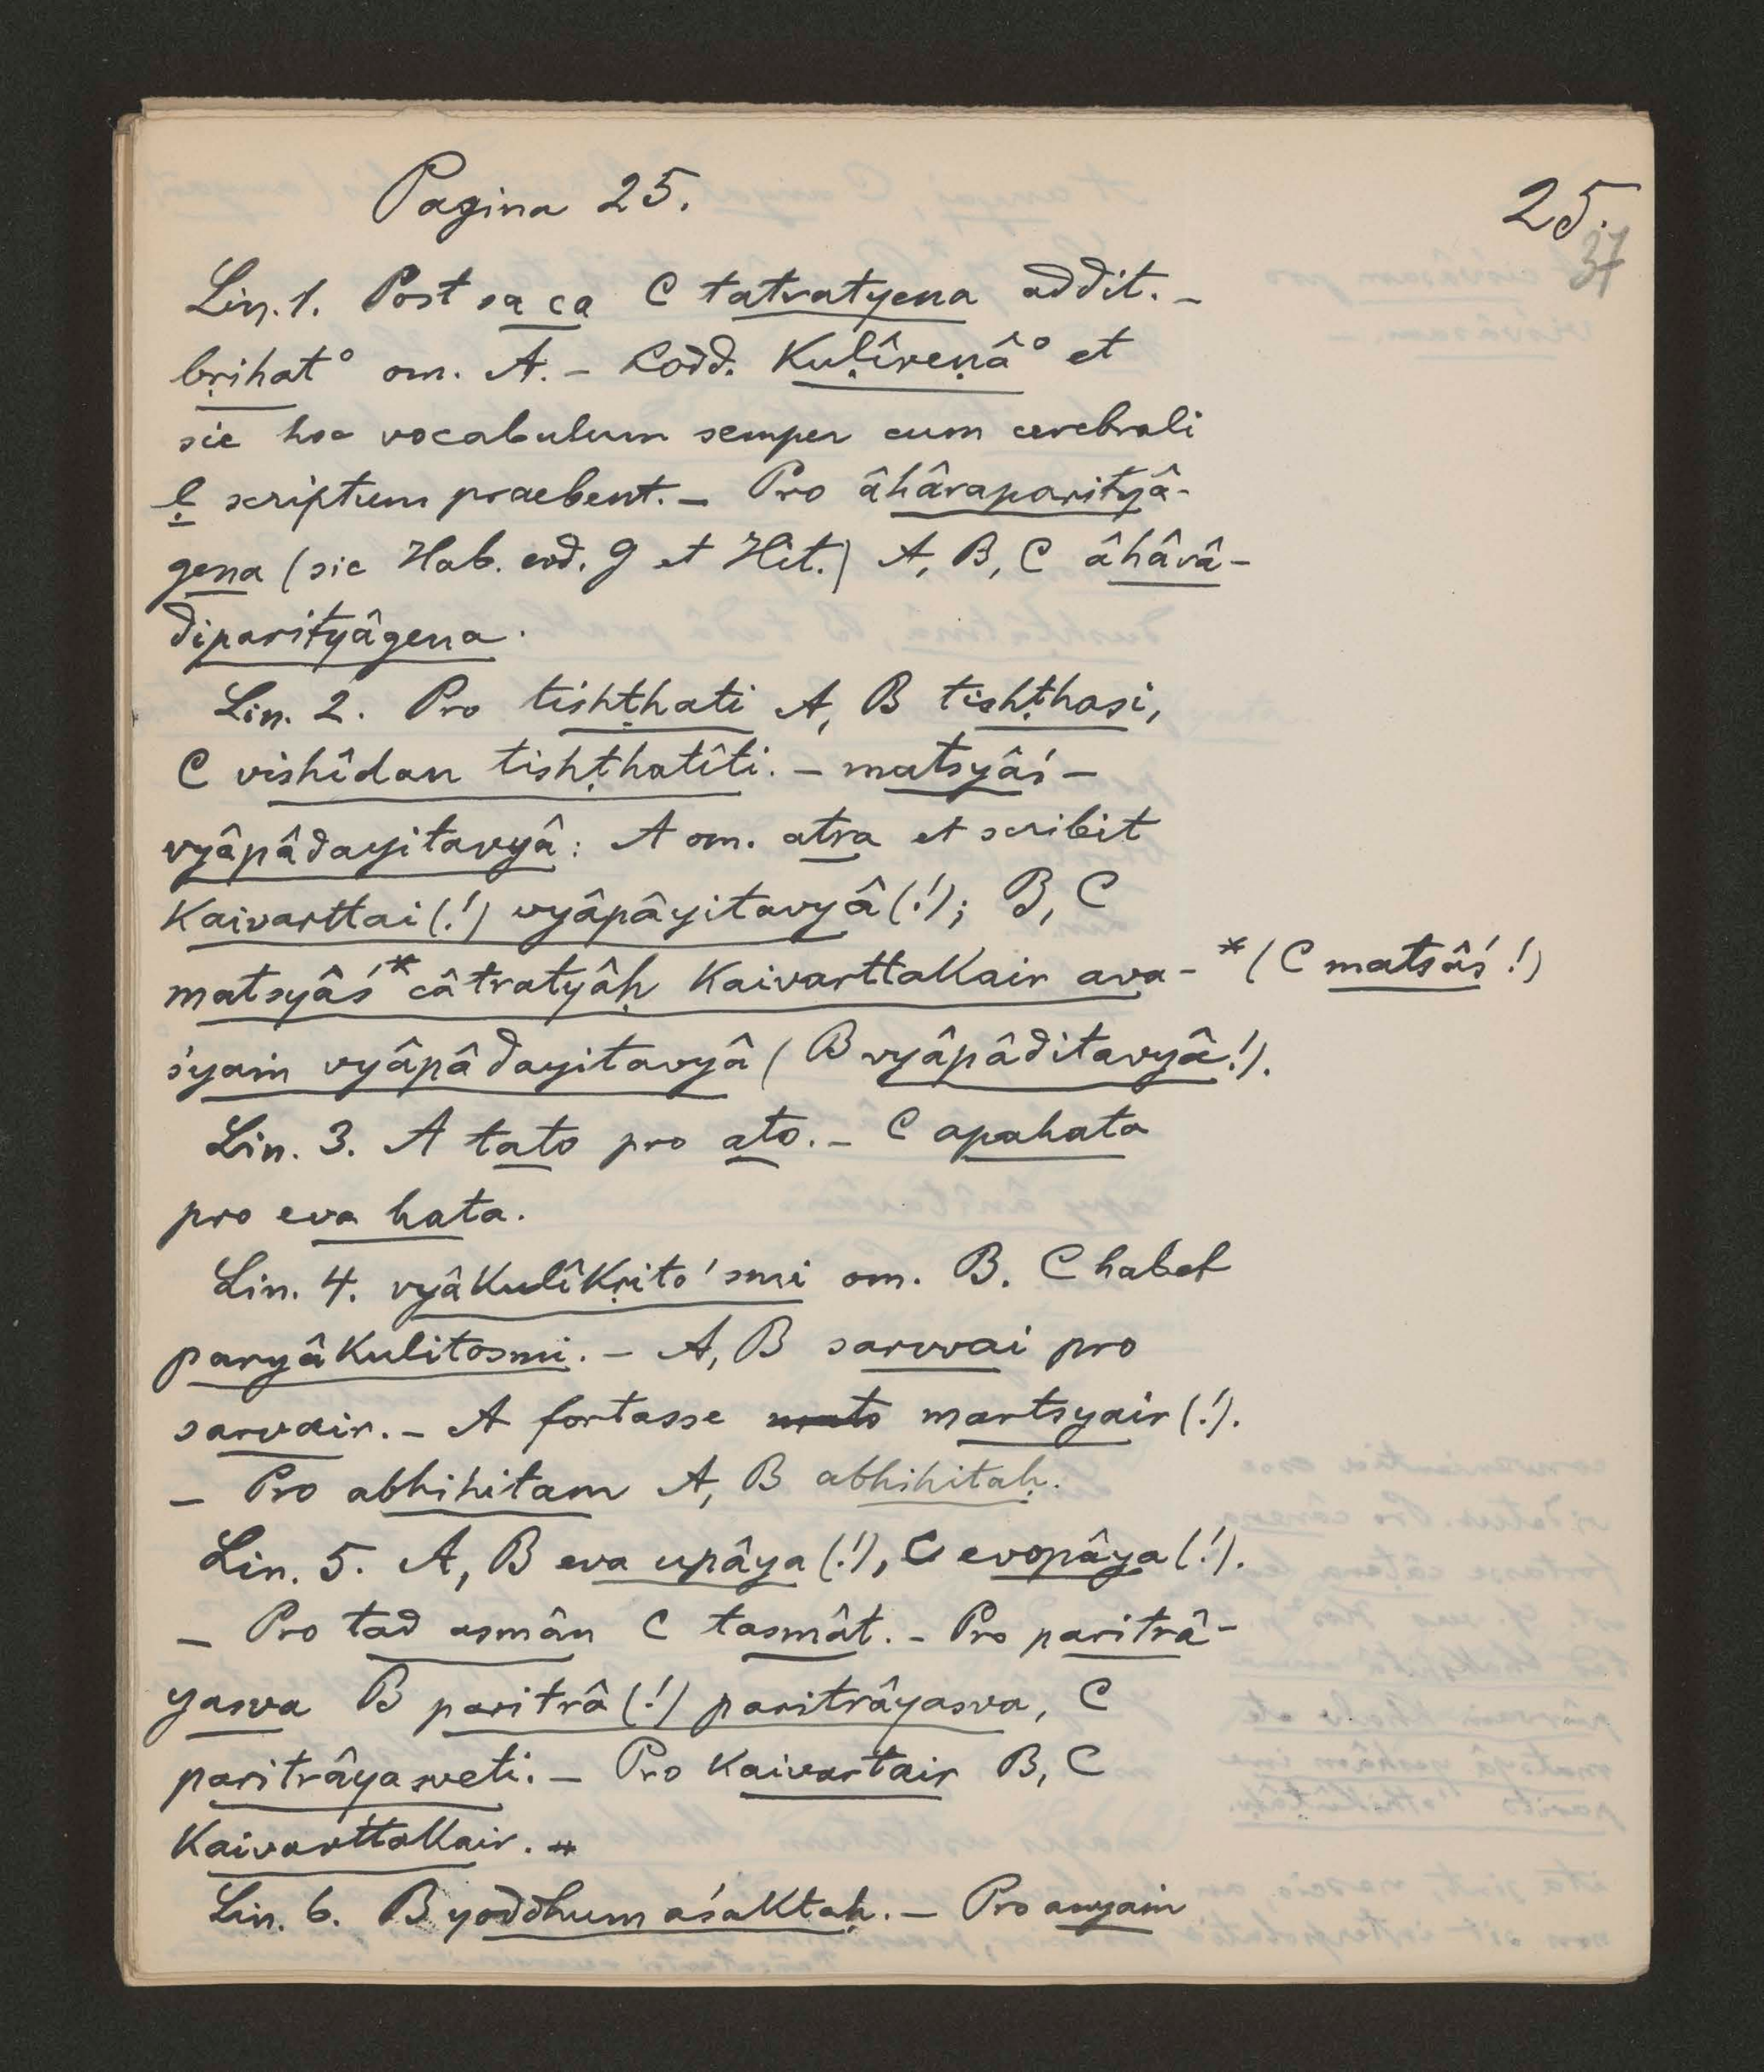 Pagina 25.
25.
37
Lin. 1. Post sa ca C tatratyena addit. –
bṛihat° om. A. – Codd. Kuḷîreṇâ° et
sic hoc vocabulum semper cum cerebrali
ḷ scriptum praebent. – Pro âhâraparityâ-
gena (sic Hab. cod. G et Hit.) A, B, C âhârâ-
diparityâgena.
Lin. 2. Pro tishṭhati A, B tishṭhasi,
C vishîdan tishṭhatîti. – matsyâś –
vyâpâdayitavyâ: A om. atra et scribit
Kaivarttai(!) vyâpâyitavyâ(!); B, C
matsyâś* câtratyâḥ Kaivarttakair ava- *(C matsâś!)
śyaṁ vyâpâdayitavyâ (B vyâpâditavyâ!).
Lin. 3. A tato pro ato. – C apahata
pro eva hata.
Lin. 4. vyâkulîkṛito'smi om. B. C habet
paryâkulitosmi. – A, B sarvvai pro
sarvair. – A fortasse martsyair(!).
– Pro abhihitam A, B abhihitaḥ.
Lin. 5. A, B eva upâya(!), C evopâya(!).
– Pro tad asmân C tasmât. – Pro paritrâ-
yasva B paritrâ(!) paritrâyasva, C
paritrâyasveti. – Pro Kaivartair B, C
Kaivarttakair.
Lin. 6. B yoddhum aśaktaḥ. – Pro anyaṁ